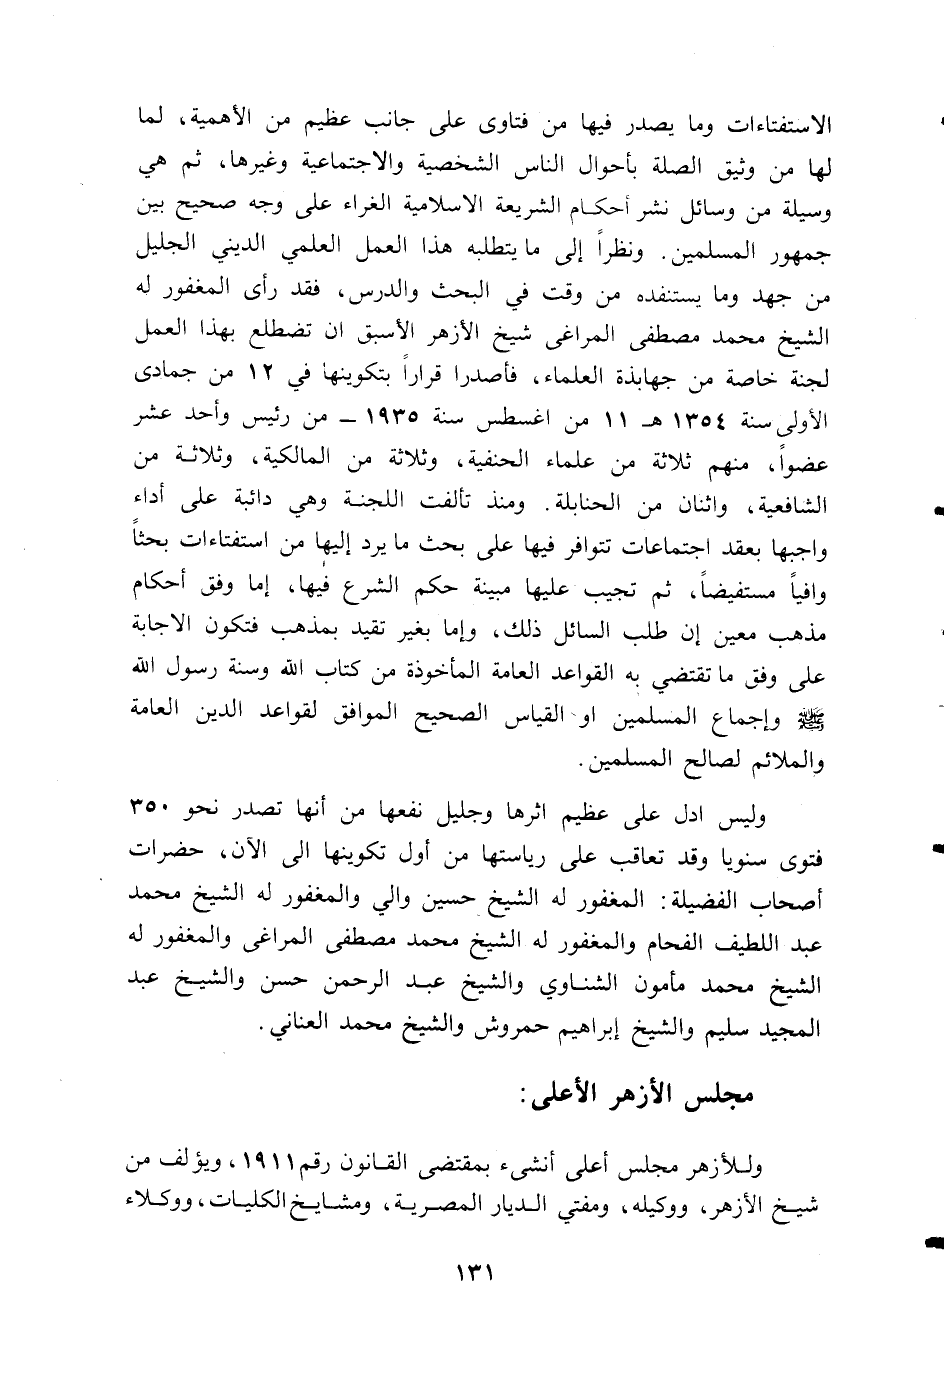 الاستفتاءات وما يصدر فيها من فتاوى على جانب عظيم من الأهمية، لما
لها من وثيق الصلة بأحوال الناس الشخصية والاجتماعية وغيرها، ثم هي
وسيلة من وسائل نشر أحكام الشريعة الاسلامية الغراء على وجه صحيح بين
جمهور المسلمين. ونظراً إلى ما يتطلبه هذا العمل العلمي الديني الجليل
من جهد وما يستنفده من وقت في البحث والدرس، فقد رأى المغفور له
الشيخ محمد مصطفى المراغى شيخ الأزهر الأسبق ان تضطلع بهذا العمل
لجنة خاصة من جهابذة العلماء، فأصدرا قراراً بتكوينها في ١٢ من جمادى
الأولى سنة ١٣٥٤ هـ ١١ من اغسطس سنة ١٩٣٥ ــ من رئيس وأحد عشر
عضواً، منهم ثلاثة من علماء الحنفية، وثلاثة من المالكية، وثلاثة من
الشافعية، واثنان من الحنابلة. ومنذ تألفت اللجنة وهي دائبة على أداء
واجبها بعقد اجتماعات تتوافر فيها على بحث ما يرد إليها من استفتاءات بحثاً
وافياً مستفيضاً، ثم تجيب عليها مبينة حكم الشرع فيها، إما وفق أحكام
مذهب معين إن طلب السائل ذلك، وإما بغير تقيد بمذهب فتكون الاجابة
على وفق ما تقتضي به القواعد العامة المأخوذة من كتاب الله وسنة رسول الله
ﷺ وإجماع المسلمين او القياس الصحيح الموافق لقواعد الدين العامة
والملائم لصالح المسلمين.
وليس ادل على عظيم اثرها وجليل نفعها من أنها تصدر نحو ٣٥٠
فتوى سنويا وقد تعاقب على رياستها من أول تكوينها الى الآن، حضرات
أصحاب الفضيلة: المغفور له الشيخ حسين والي والمغفور له الشيخ محمد
عبد اللطيف الفحام والمغفور له الشيخ محمد مصطفى المراغى والمغفور له
الشيخ محمد مأمون الشناوي والشيخ عبد الرحمن حسن والشيخ عبد
المجيد سليم والشيخ إبراهيم حمروش والشيخ محمد العناني.
مجلس الأزهر الأعلى:
وللأزهر مجلس أعلى أنشىء بمقتضى القانون رقم ١٩١١، ويؤلف من
شيخ الأزهر، ووكيله، ومفتي الديار المصرية، ومشايخ الكليات، ووكلاء
١٣١